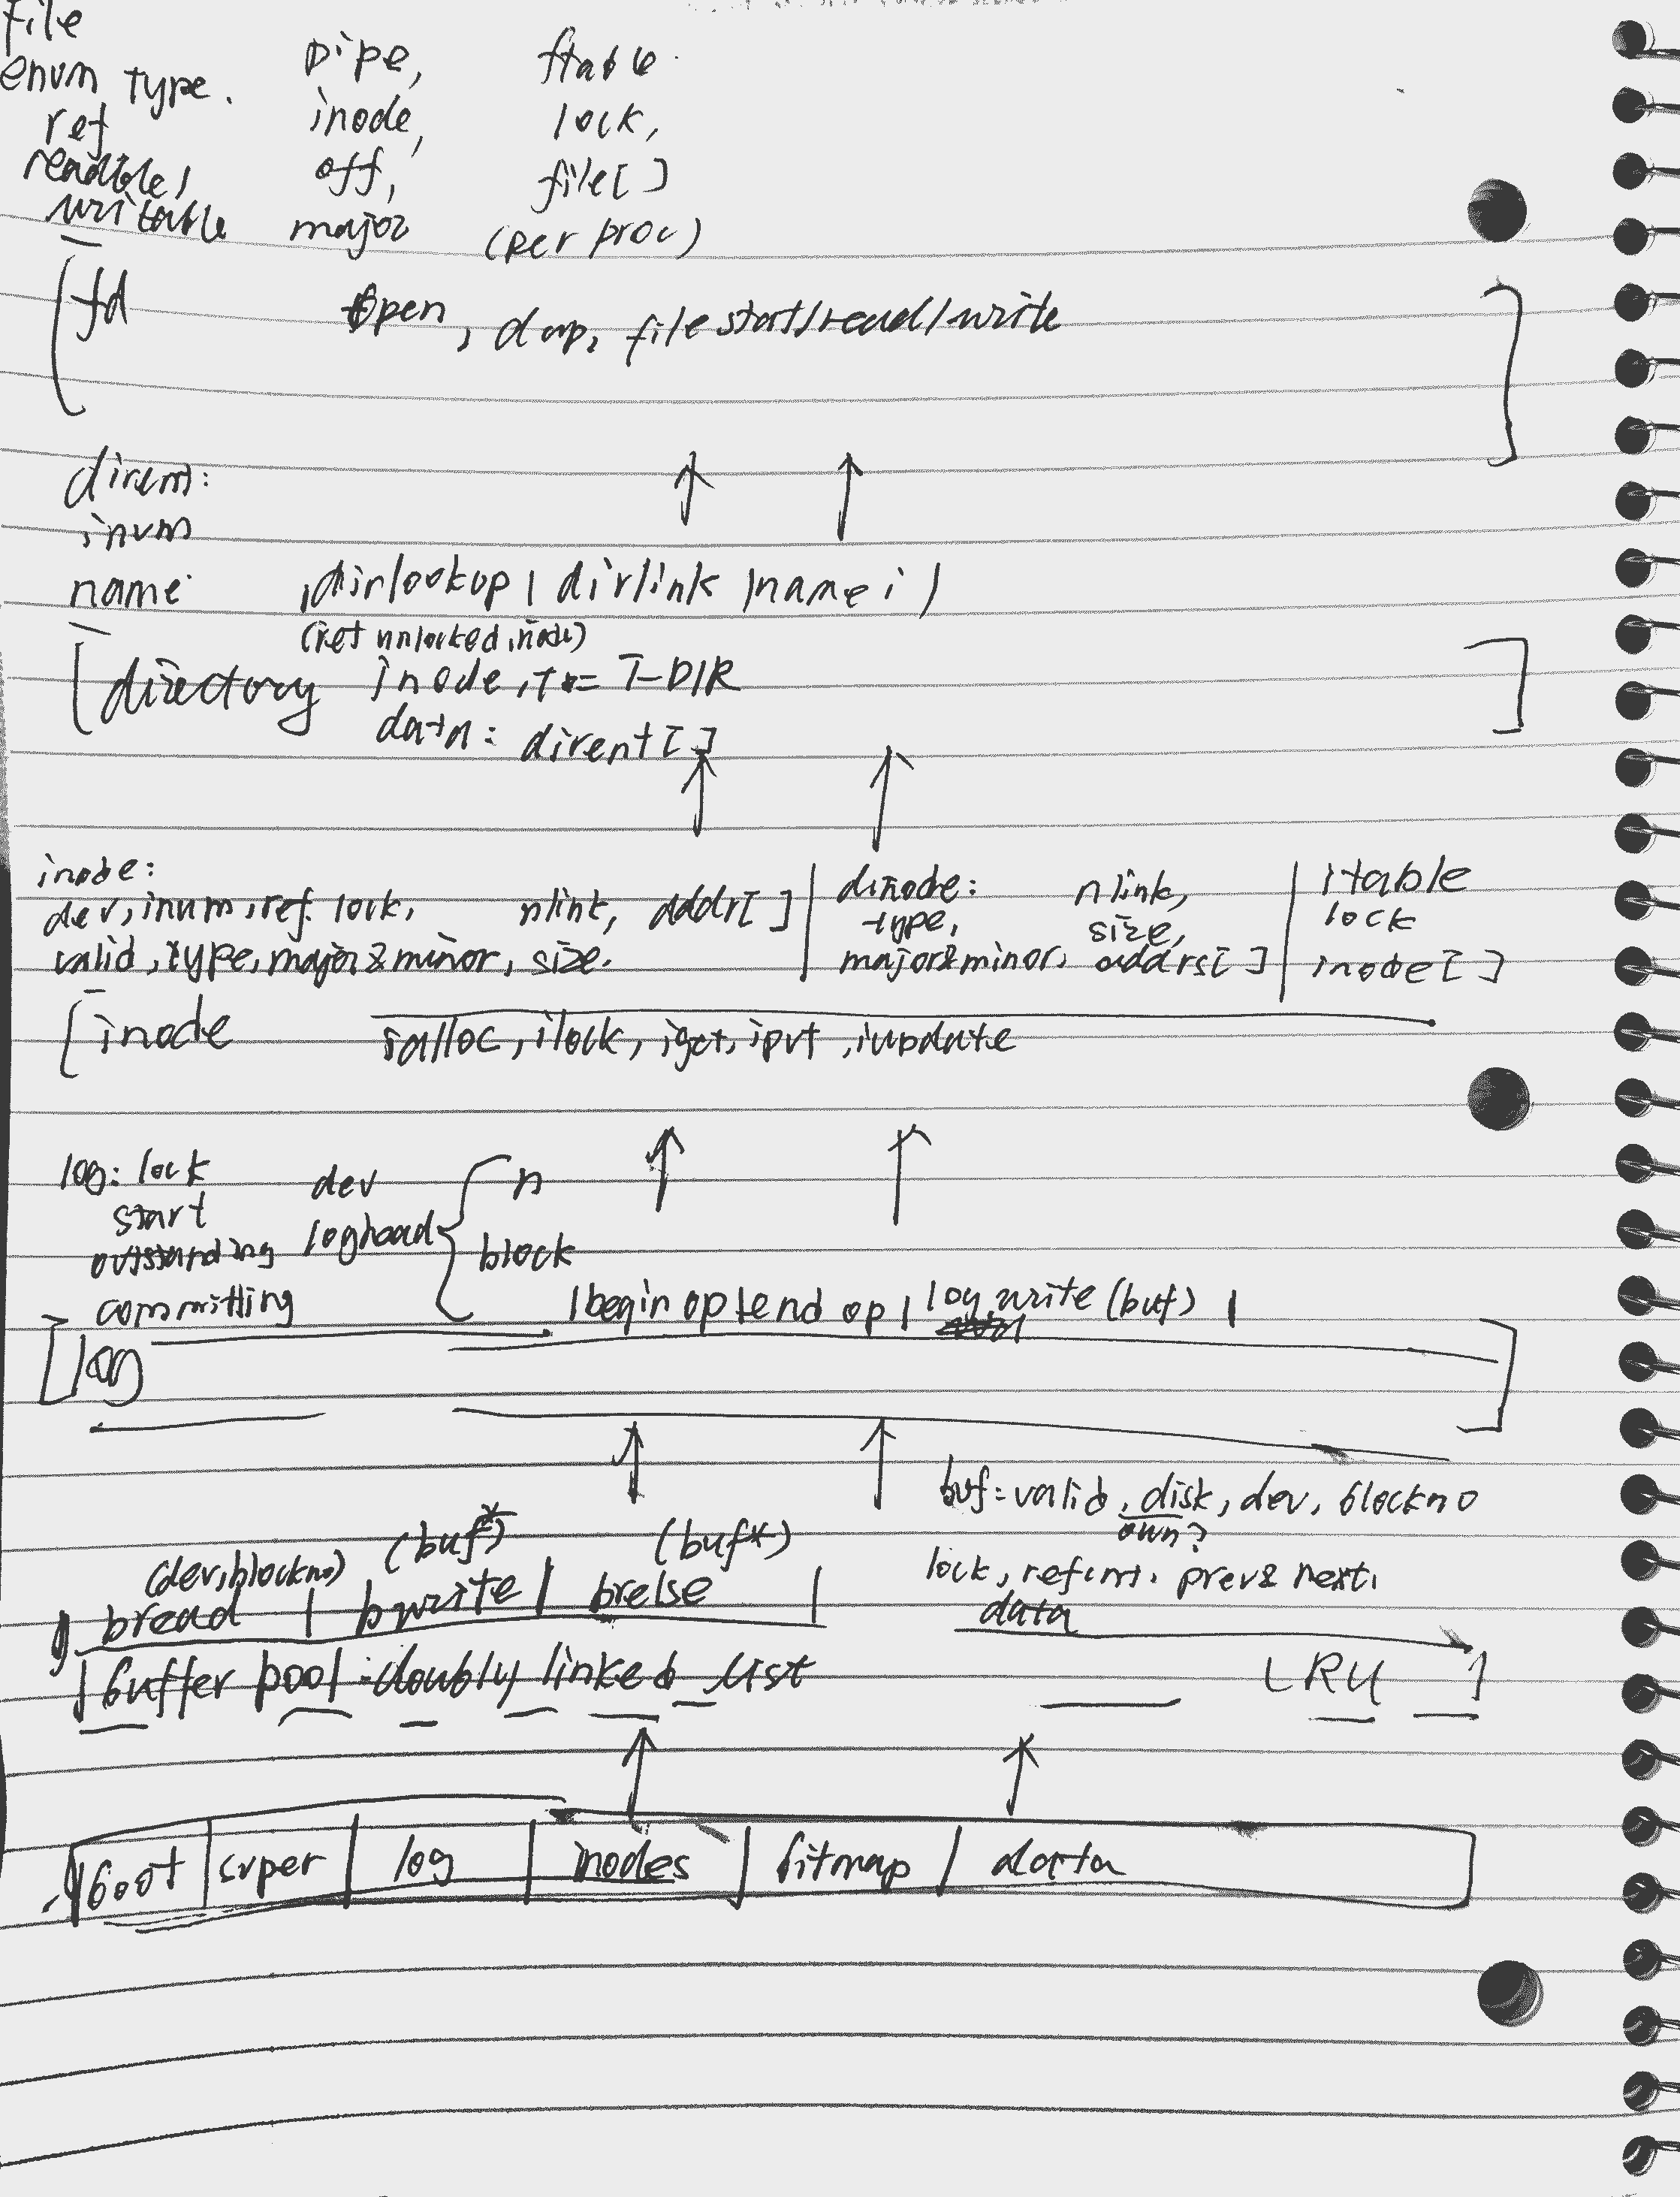 file
enum type. pipe, ftable
ref inode, lock,
readble, off, file[ ]
writable major (per proc)
fd open, dup, file start/read/write
dirent:
inum
name dirlookup | dirlink | namei |
(ret unlocked inode)
directory inode, T_DIR
data: dirent[ ]
inode:
dev, inum, ref. lock, nlink, addr[ ] | dinode: nlink, | itable
type, size, lock
valid, type, major & minor, size. major&minor, addrs[ ] inode[ ]
inode ialloc, ilock, iget, iput, iupdate
log: lock dev n
start loghead
outstanding block
committing | begin op | end op | log write (buf) |
log
buf: valid, disk, dev, blockno
own?
(dev, blockno) (buf*) (buf*) lock, refcnt, prev & next,
bread | bwrite | brelse | data
buffer pool : doubly linked list LRU
boot | super | log | inodes | bitmap | data